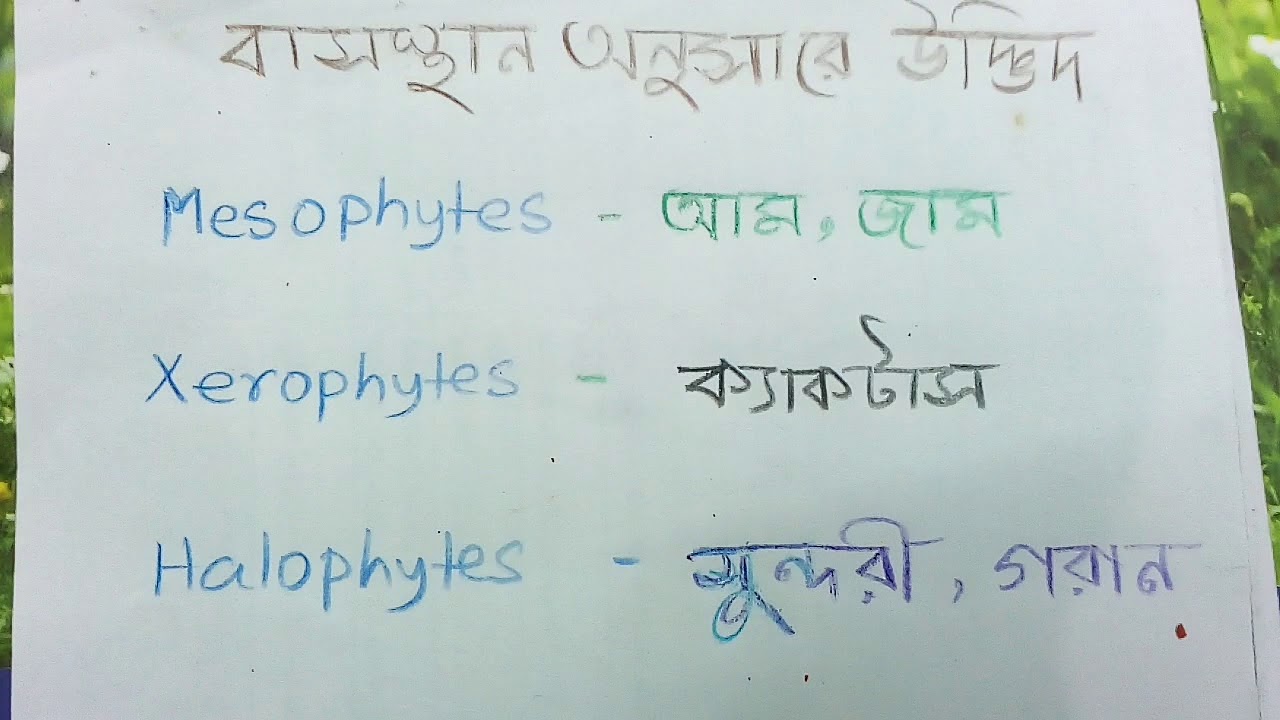 বাসস্থান অনুসারে উদ্ভিদ
Mesophytes - আম, জাম
Xerophytes - ক্যাকটাস
Halophytes - সুন্দরী, গরান